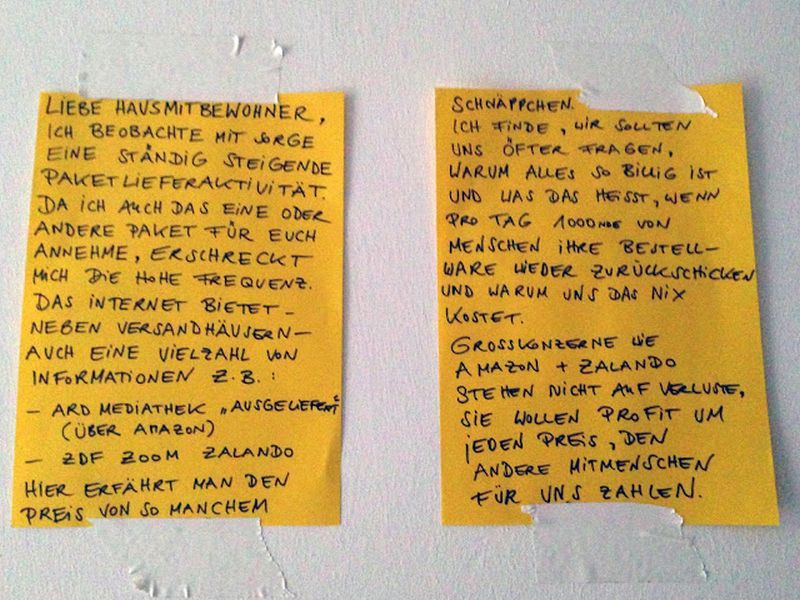 LIEBE HAUSMITBEWOHNER,
ICH BEOBACHTE MIT SORGE
EINE STÄNDIG STEIGENDE
PAKETLIEFERAKTIVITÄT.
DA ICH AUCH DAS EINE ODER
ANDERE PAKET FÜR EUCH
ANNEHME, ERSCHRECKT
MICH DIE HOHE FREQUENZ.
DAS INTERNET BIETET –
NEBEN VERSANDHÄUSERN –
AUCH EINE VIELZAHL VON
INFORMATIONEN Z.B.:
– ARD MEDIATHEK „AUSGELIEFERT“
(ÜBER AMAZON)
– ZDF ZOOM ZALANDO
HIER ERFÄHRT MAN DEN
PREIS VON SO MANCHEM
SCHNÄPPCHEN.
ICH FINDE, WIR SOLLTEN
UNS ÖFTER FRAGEN,
WARUM ALLES SO BILLIG IST
UND WAS DAS HEISST, WENN
PRO TAG 1000NDE VON
MENSCHEN IHRE BESTELL–
WARE WIEDER ZURÜCKSCHICKEN
UND WARUM UNS DAS NIX
KOSTET.
GROSSKONZERNE WIE
AMAZON + ZALANDO
STEHEN NICHT AUF VERLUSTE,
SIE WOLLEN PROFIT UM
JEDEN PREIS, DEN
ANDERE MITMENSCHEN
FÜR UNS ZAHLEN.